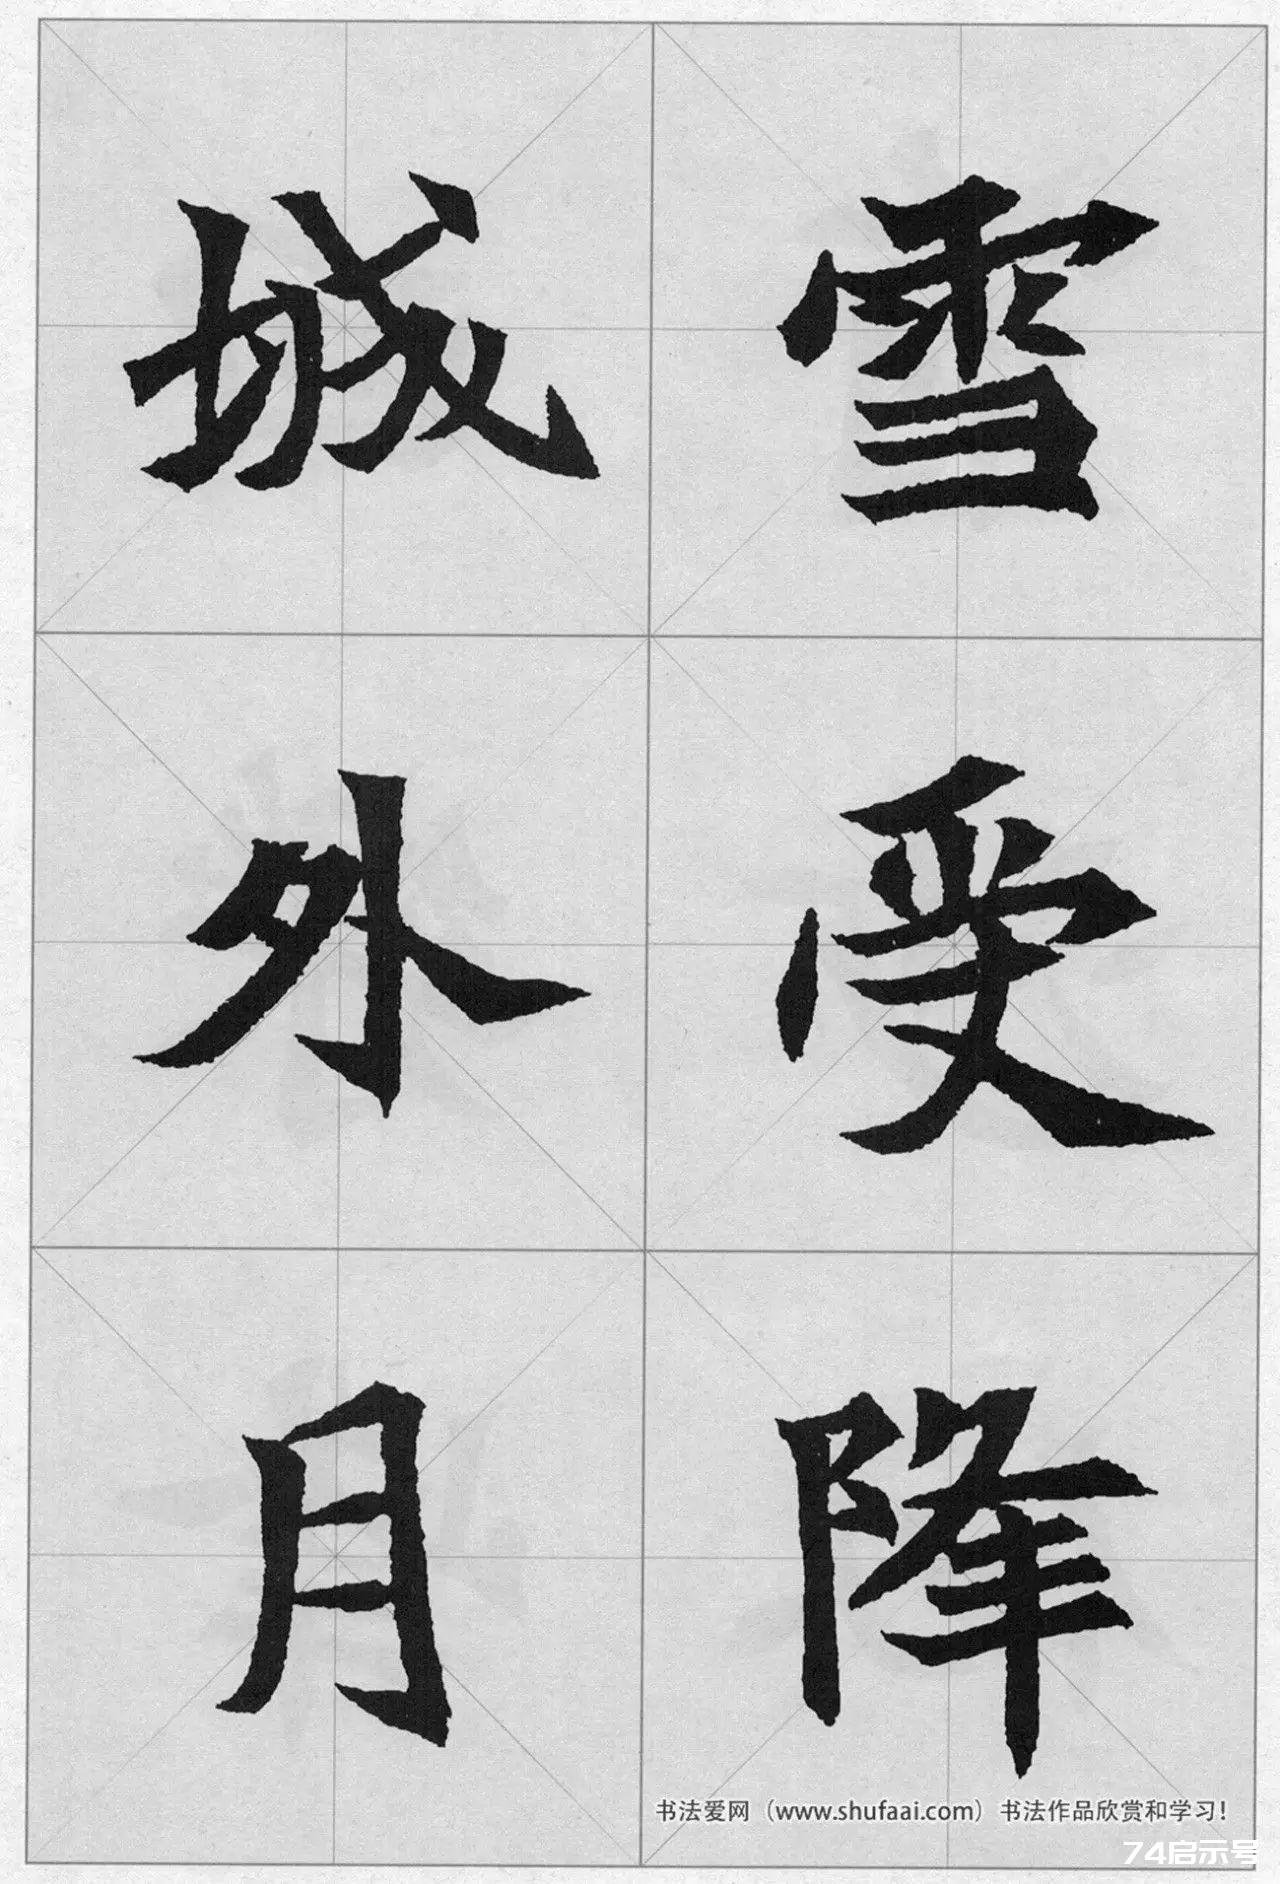 雪受降
城外月
书法爱网（www.shufaai.com）书法作品欣赏和学习!
74启示号